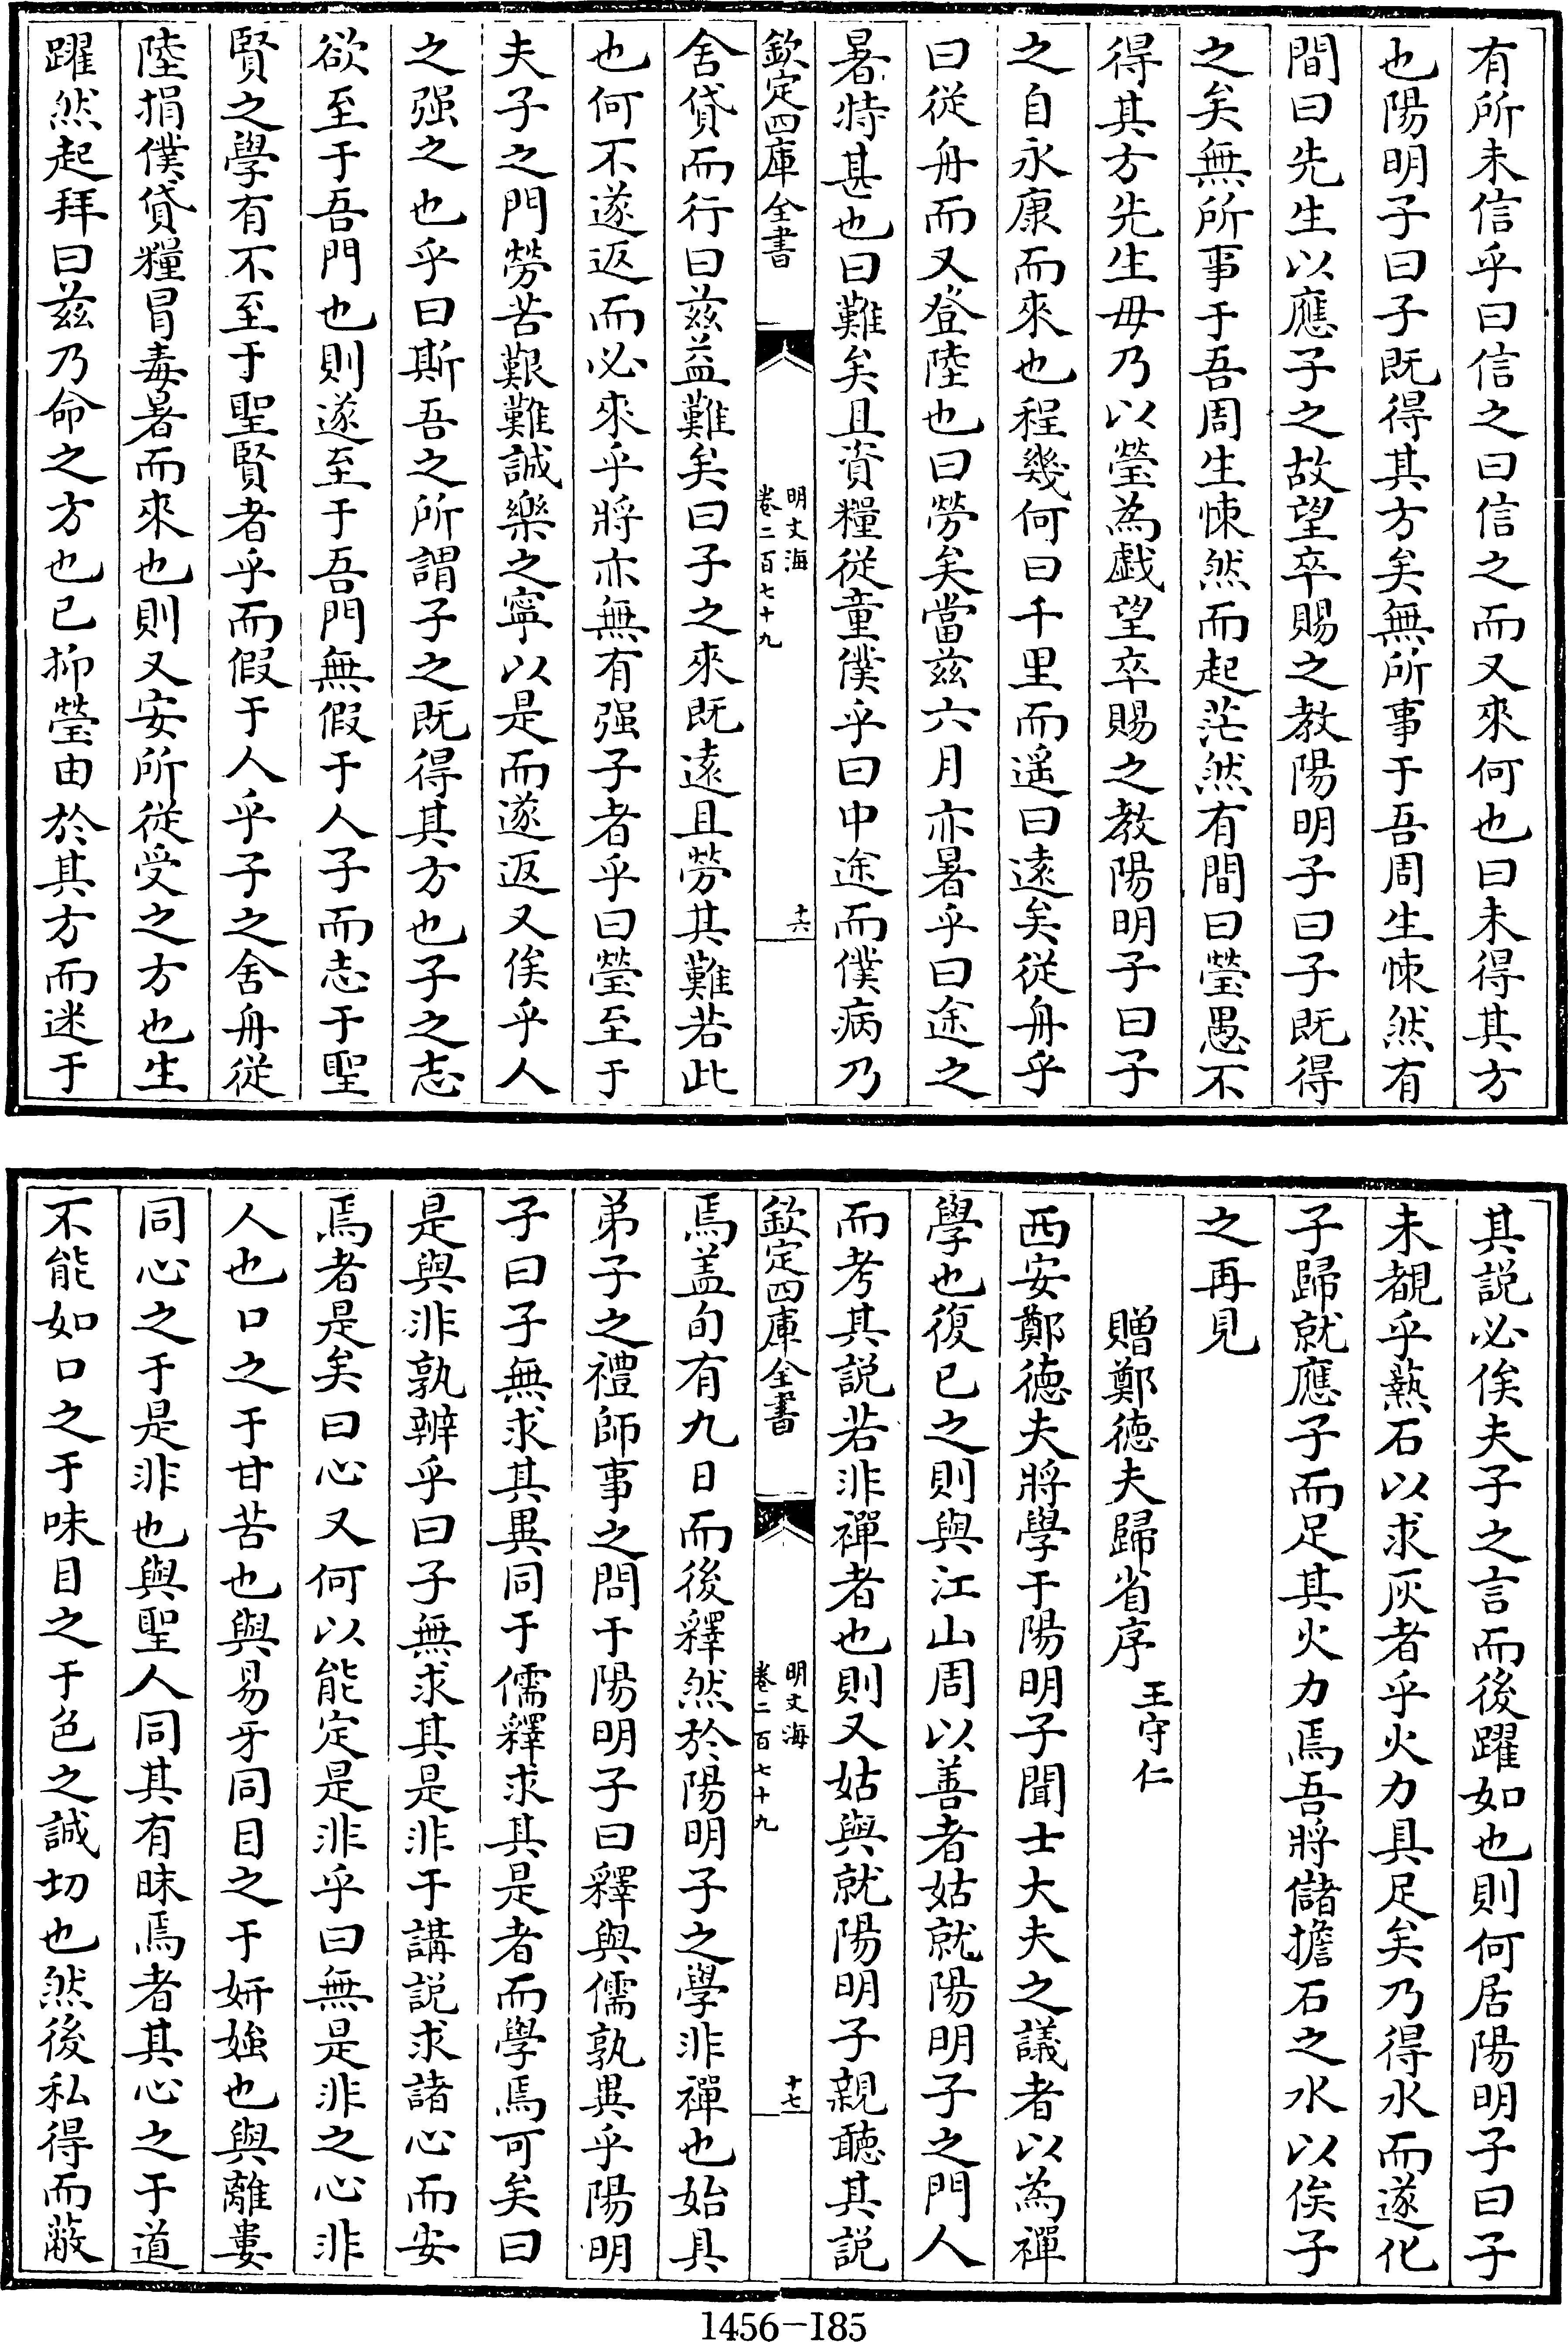 有所未信乎曰信之曰信之而又來何也曰未得其方
也陽明子曰子既得其方矣無所事于吾周生悚然有
間曰先生以應子之故望卒賜之教陽明子曰子既得
之矣無所事于吾周生悚然而起茫然有間曰瑩愚不
得其方先生毋乃以瑩為戯望卒賜之教陽明子曰子
之自永康而來也程幾何曰千里而遥曰遠矣從舟乎
曰從舟而又登陸也曰勞矣當兹六月亦暑乎曰途之
暑特甚也曰難矣且資糧從童僕乎曰中途而僕病乃
欽定四庫全書
明文海
卷二百七十九
十六
舍貸而行曰兹益難矣曰子之來既遠且勞其難若此
也何不遂返而必來乎將亦無有强子者乎曰瑩至于
夫子之門勞苦艱難誠樂之寧以是而遂返又俟乎人
之强之也乎曰斯吾之所謂子之既得其方也子之志
欲至于吾門也則遂至于吾門無假于人子而志于聖
賢之學有不至于聖賢者乎而假于人乎子之舍舟從
陸捐僕貸糧冒毒暑而來也則又安所從受之方也生
躍然起拜曰兹乃命之方也已抑瑩由於其方而迷于
其説必俟夫子之言而後躍如也則何居陽明子曰子
未覩乎爇石以求灰者乎火力具足矣乃得水而遂化
子歸就應子而足其火力焉吾將儲擔石之水以俟子
之再見
贈鄭徳夫歸省序
王守仁
西安鄭徳夫將學于陽明子聞士大夫之議者以為禪
學也復已之則與江山周以善者姑就陽明子之門人
而考其説若非禪者也則又姑與就陽明子親聽其説
欽定四庫全書
明文海
卷二百七十九
十七
焉盖旬有九日而後釋然於陽明子之學非禪也始具
弟子之禮師事之問于陽明子曰釋與儒孰異乎陽明
子曰子無求其異同于儒釋求其是者而學焉可矣曰
是與非孰辨乎曰子無求其是非于講説求諸心而安
焉者是矣曰心又何以能定是非乎曰無是非之心非
人也口之于甘苦也與易牙同目之于妍媸也與離婁
同心之于是非也與聖人同其有昧焉者其心之于道
不能如口之于味目之于色之誠切也然後私得而蔽
1456-185